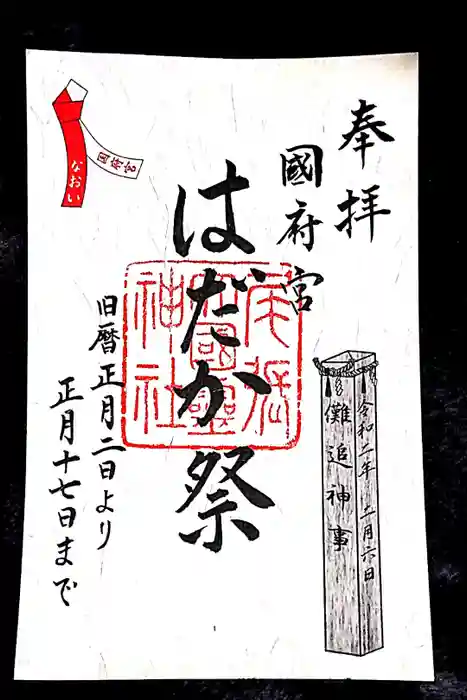 奉拝
國府宮
はだか祭
旧暦正月二日より
正月十七日まで
尾張
大國霊
神社
令和二年 二月六日
儺追神事
國府宮
なおい